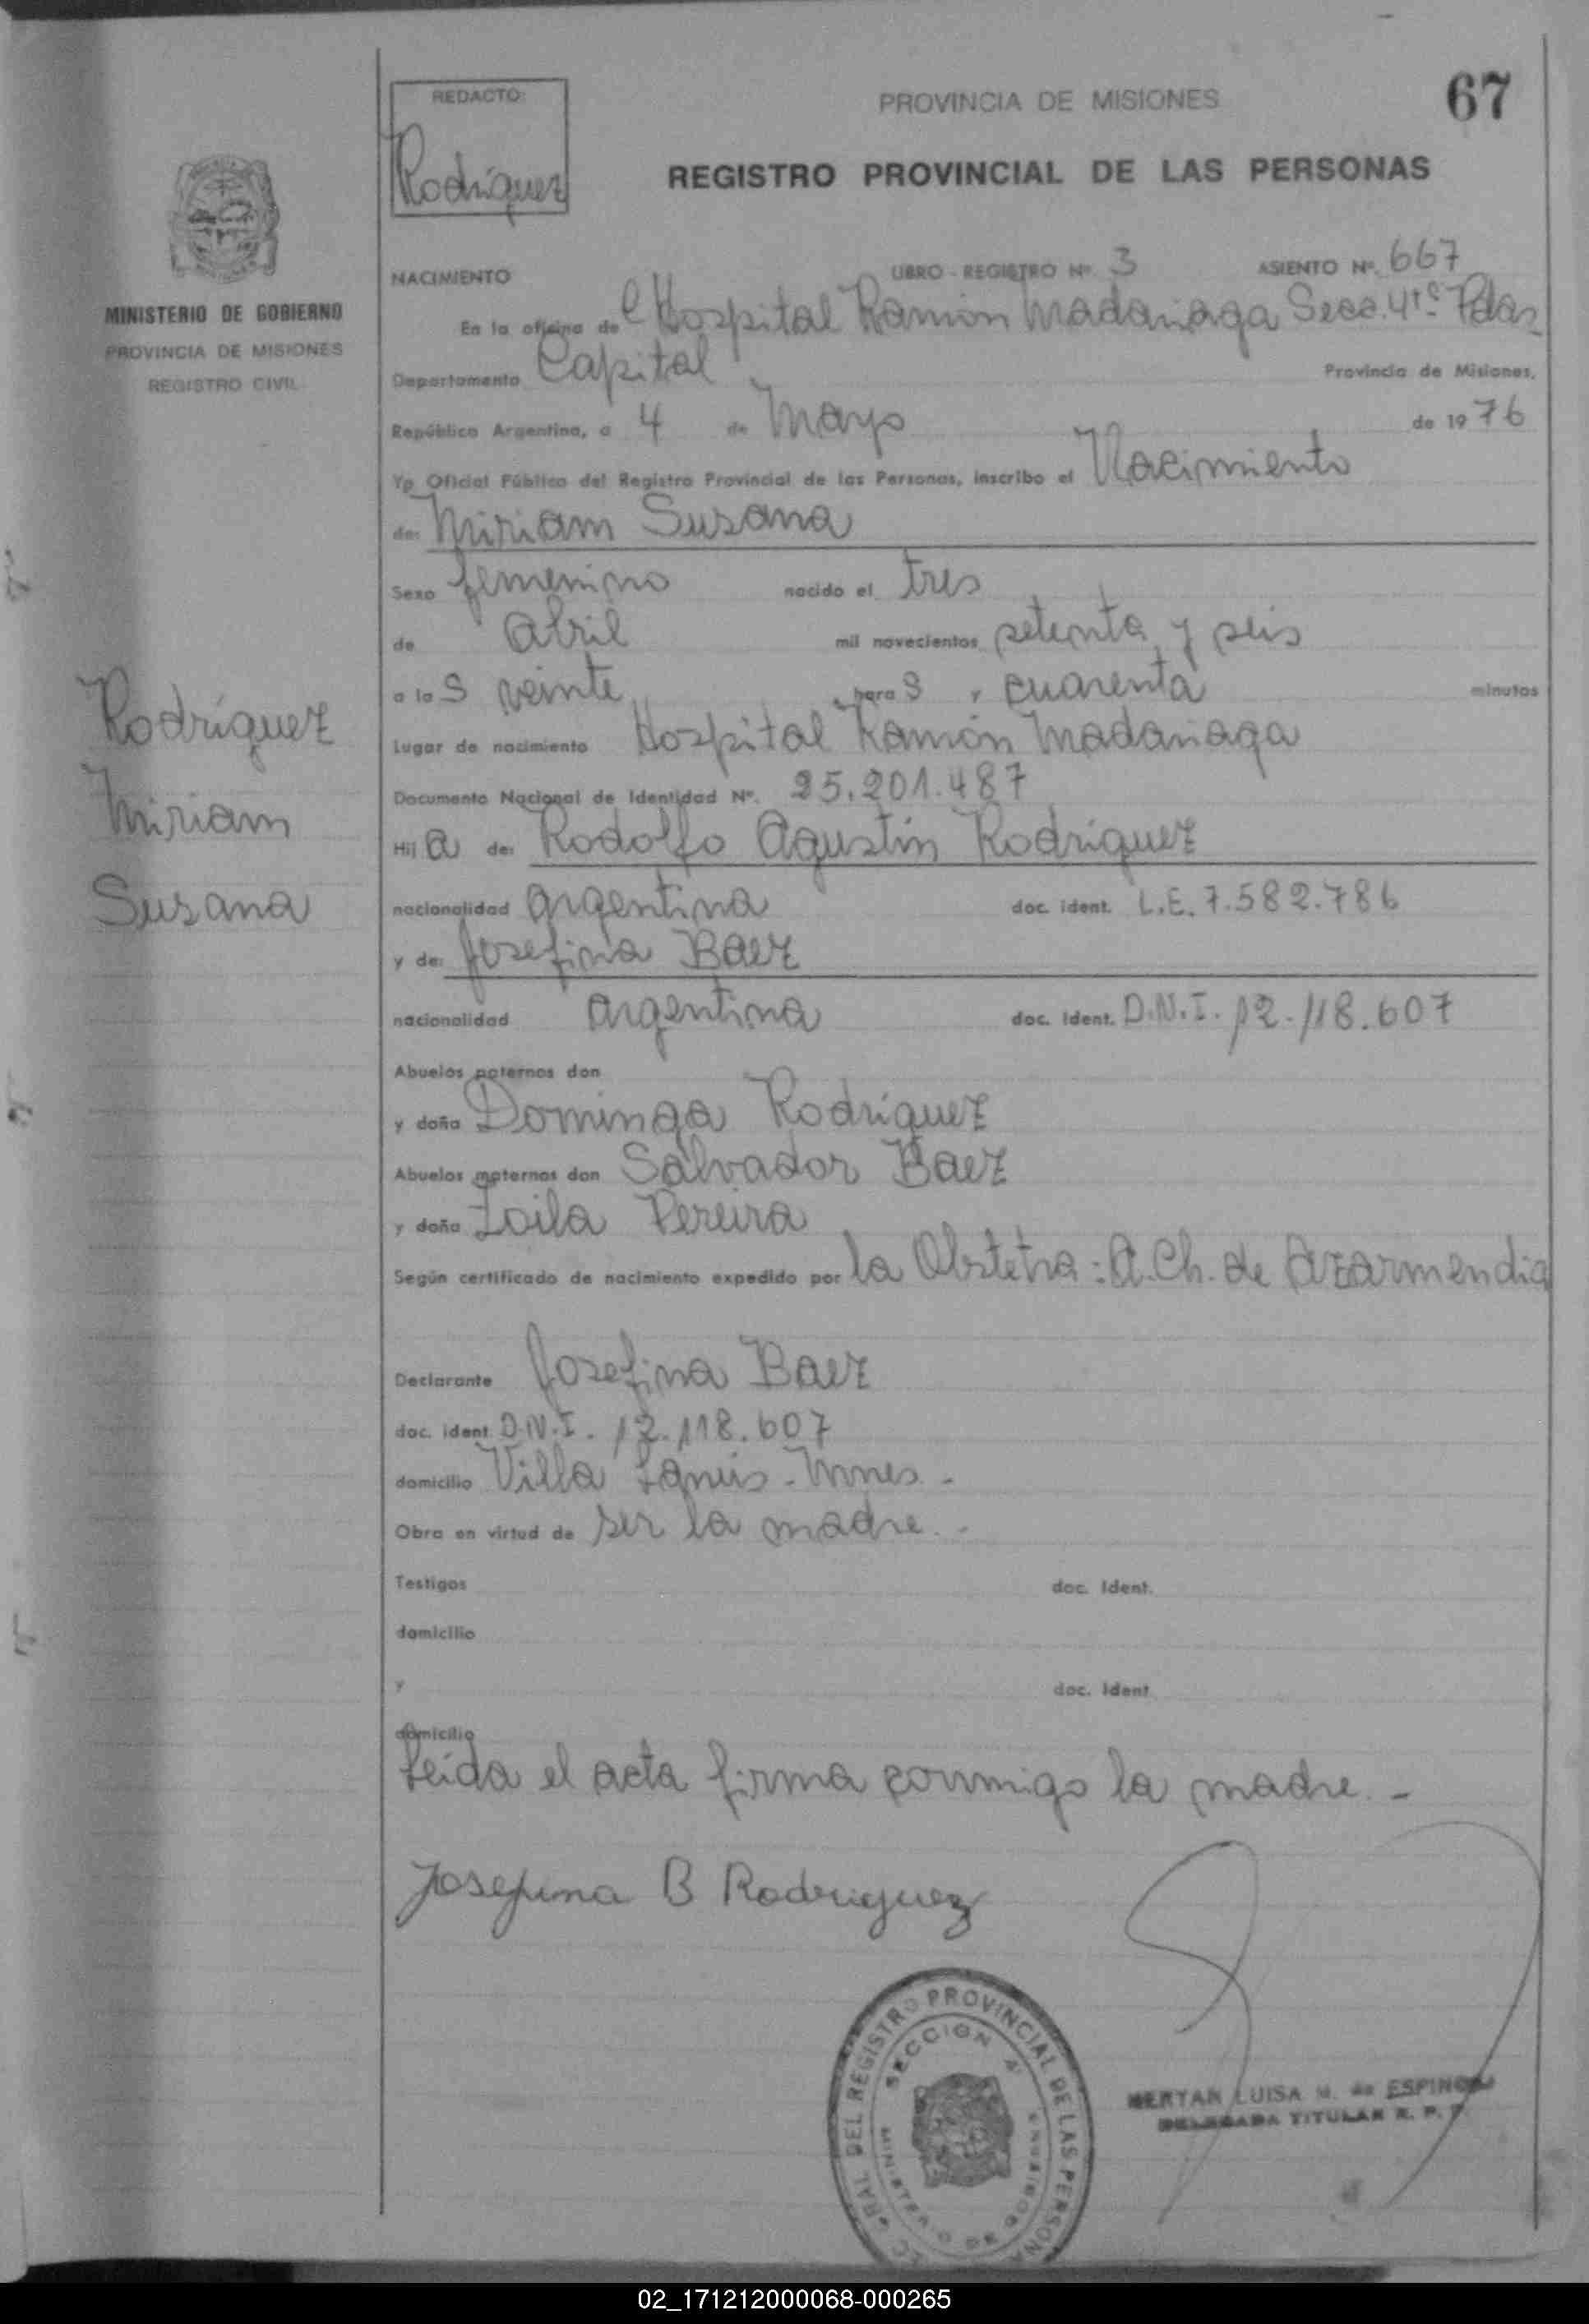 REDACTO:
Rodríguez
PROVINCIA DE MISIONES
67
REGISTRO PROVINCIAL DE LAS PERSONAS
MINISTERIO DE GOBIERNO
PROVINCIA DE MISIONES
REGISTRO CIVIL
NACIMIENTO LIBRO - REGISTRO Nº. 3 ASIENTO Nº. 667
En la oficina de Hospital Ramón Madariaga Secc. 4tª Pdas
Departamento Capital Provincia de Misiones,
República Argentina, a 4 de Mayo de 1976
Yo Oficial Público del Registro Provincial de las Personas, inscribo el Nacimiento
de: Miriam Susana
Sexo femenino nacido el tres
de Abril mil novecientos setenta y seis
a las veinte horas y cuarenta minutos
Lugar de nacimiento Hospital Ramón Madariaga
Documento Nacional de Identidad Nº. 25.201.487
Hija de: Rodolfo Agustín Rodríguez
nacionalidad argentina doc. ident. L.E. 7.582.786
y de: Josefina Baez
nacionalidad argentina doc. ident. D.N.I. 12.118.607
Abuelos paternos don
y doña Dominga Rodríguez
Abuelos maternos don Salvador Baez
y doña Zoila Pereira
Según certificado de nacimiento expedido por la Obstetra: A.Ch. de Azarmendia
Declarante Josefina Baez
doc. ident. D.N.I. 12.118.607
domicilio Villa Lanús - Mnes. -
Obra en virtud de ser la madre. -
Testigos doc. ident.
domicilio
y doc. ident.
domicilio
Leída el acta firma conmigo la madre. -
Josefina B Rodriguez
Rodríguez
Miriam
Susana
RAL DEL REGISTRO PROVINCIAL DE LAS PERSONA
SECCION 4ª
MINISTERIO DE GOBIERNO
LUISA M. de ESPINOZA
DELEGADA TITULAR R. P. P.
02_171212000068-000265